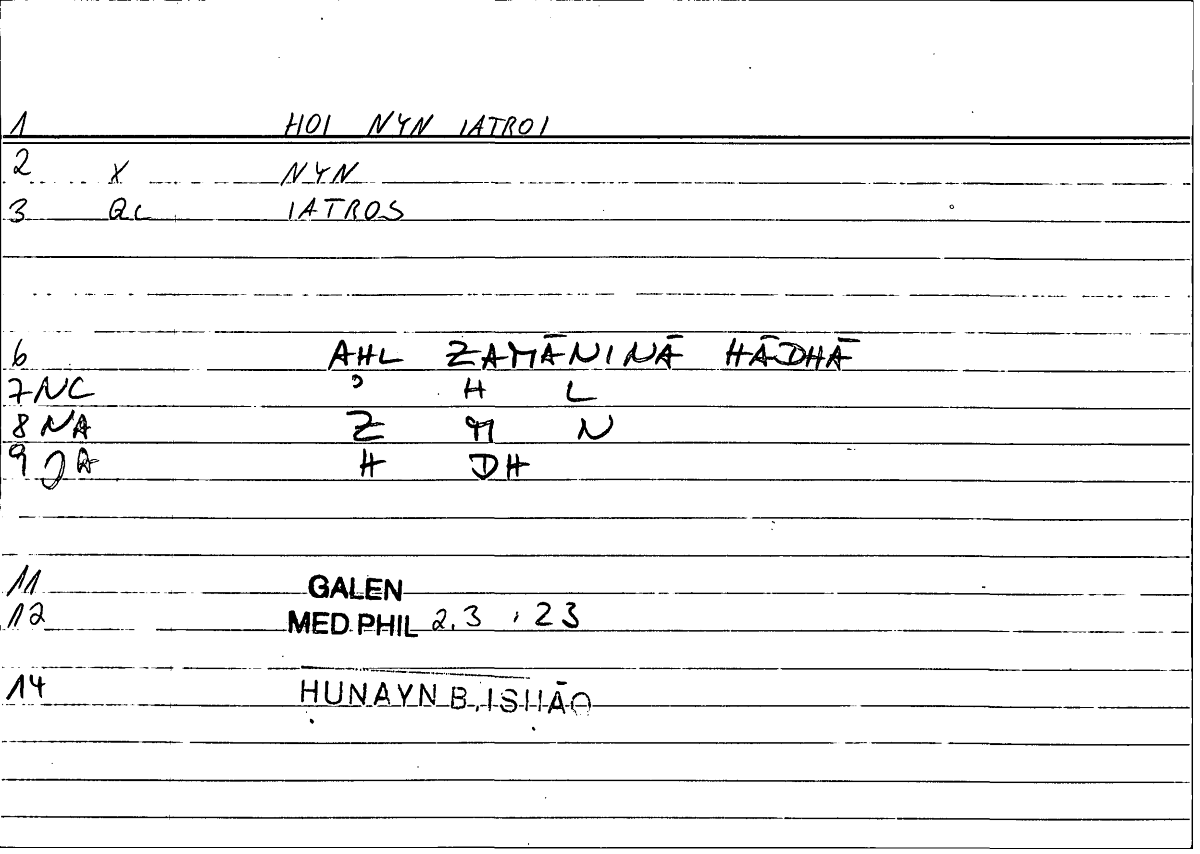 1 HOI NYN IATROI
2 X NYN
3 QC IATROS
6 AHL ZAMĀNINĀ HĀDHĀ
7 NC ʾ H L
8 NA Z M N
9 JA H DH
11 GALEN
12 MED.PHIL 2,3 , 23
14 HUNAYN B. ISHĀQ